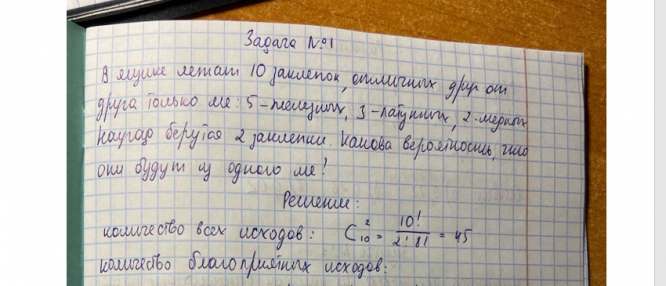 Задача №1
В ящике лежат 10 заклепок, отличных друг от
друга только ме: 5-железных, 3-латунных, 2-медных
Наугад берутся 2 заклепки. Какова вероятность, что
они будут из одного ме?
Решение:
количество всех исходов: C₁₀² = 10! / 2! 8! = 45
количество благоприятных исходов: